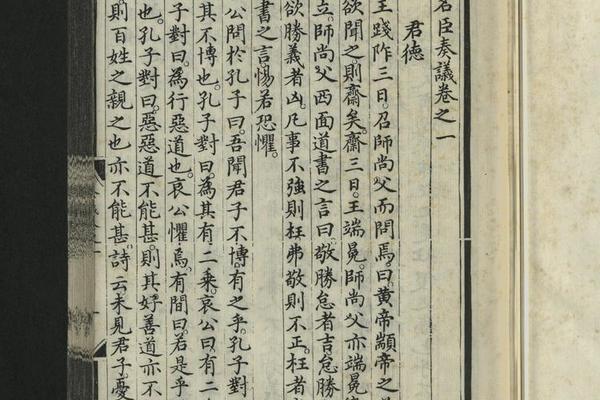 名臣奏議卷之一
君德
王踐阼三日召師尚父而問焉曰黃帝顓帝之
欲聞之則齋矣齋三日王端冕師尚父亦端冕
立師尚父西面道書之言曰敬勝怠者吉怠勝
欲勝義者凶凡事不強則枉弗敬則不正枉者
書之言惕若恐懼
公問於孔子曰吾聞君子不博有之乎孔子對
其不博也孔子對曰為其有二乘哀公曰有二
子對曰為行惡道也哀公懼焉有間曰若是乎
也孔子對曰惡惡道不能甚則其好善道亦不
則百姓之親之也亦不能甚詩云未見君子憂